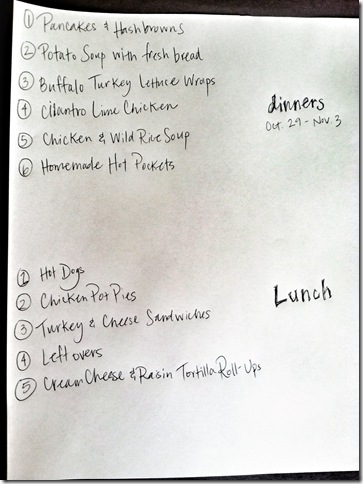 ① Pancakes & Hashbrowns
② Potato Soup with fresh bread
③ Buffalo Turkey Lettuce Wraps
④ Cilantro Lime Chicken
⑤ Chicken & Wild Rice Soup
⑥ Homemade Hot Pockets
dinners
Oct. 29 - Nov. 3
① Hot Dogs
② Chicken Pot Pies
③ Turkey & Cheese Sandwiches
④ Leftovers
⑤ Cream Cheese & Raisin Tortilla Roll-Ups
Lunch